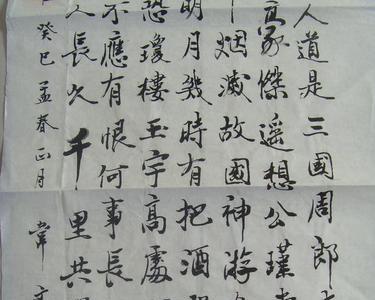 人道是三國周郎
豪傑遥想公瑾
烟滅故國神游
明月幾時有把酒
恐瓊樓玉宇高處
不應有恨何事長
人長久千里共
癸巳孟春正月 常